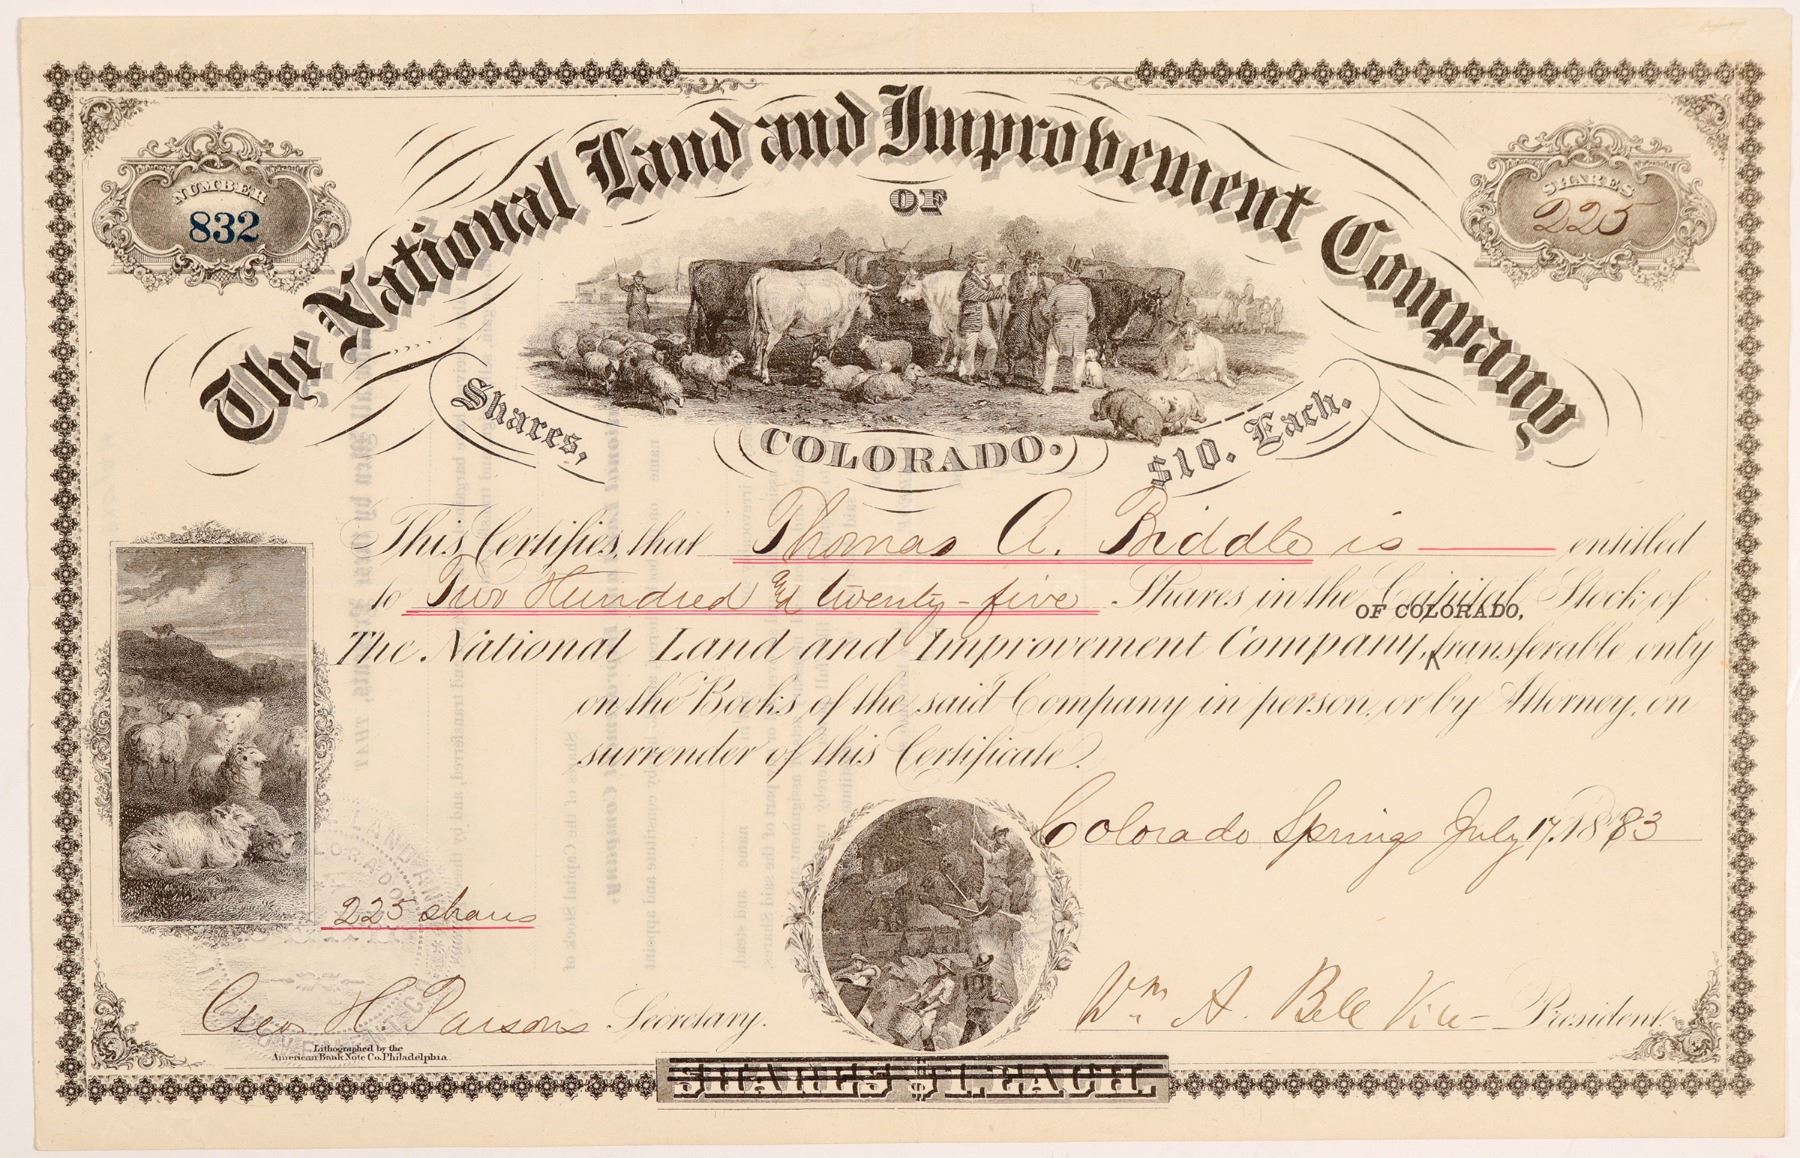 The National Land and Improvement Company
NUMBER
832
SHARES
225
OF
Shares,
COLORADO.
$10. Each.
This Certifies, that Thomas A. Biddle is entitled
to Two Hundred and twenty-five Shares in the Capital Stock of
OF COLORADO,
The National Land and Improvement Company, transferable only
on the Books of the said Company in person, or by Attorney, on
surrender of this Certificate.
Colorado Springs July 17, 1883
225 shares
Geo. H. Parsons Secretary.
Wm A. Bell Vice- President
Lithographed by the
American Bank Note Co. Philadelphia
SHARES $ EACH.